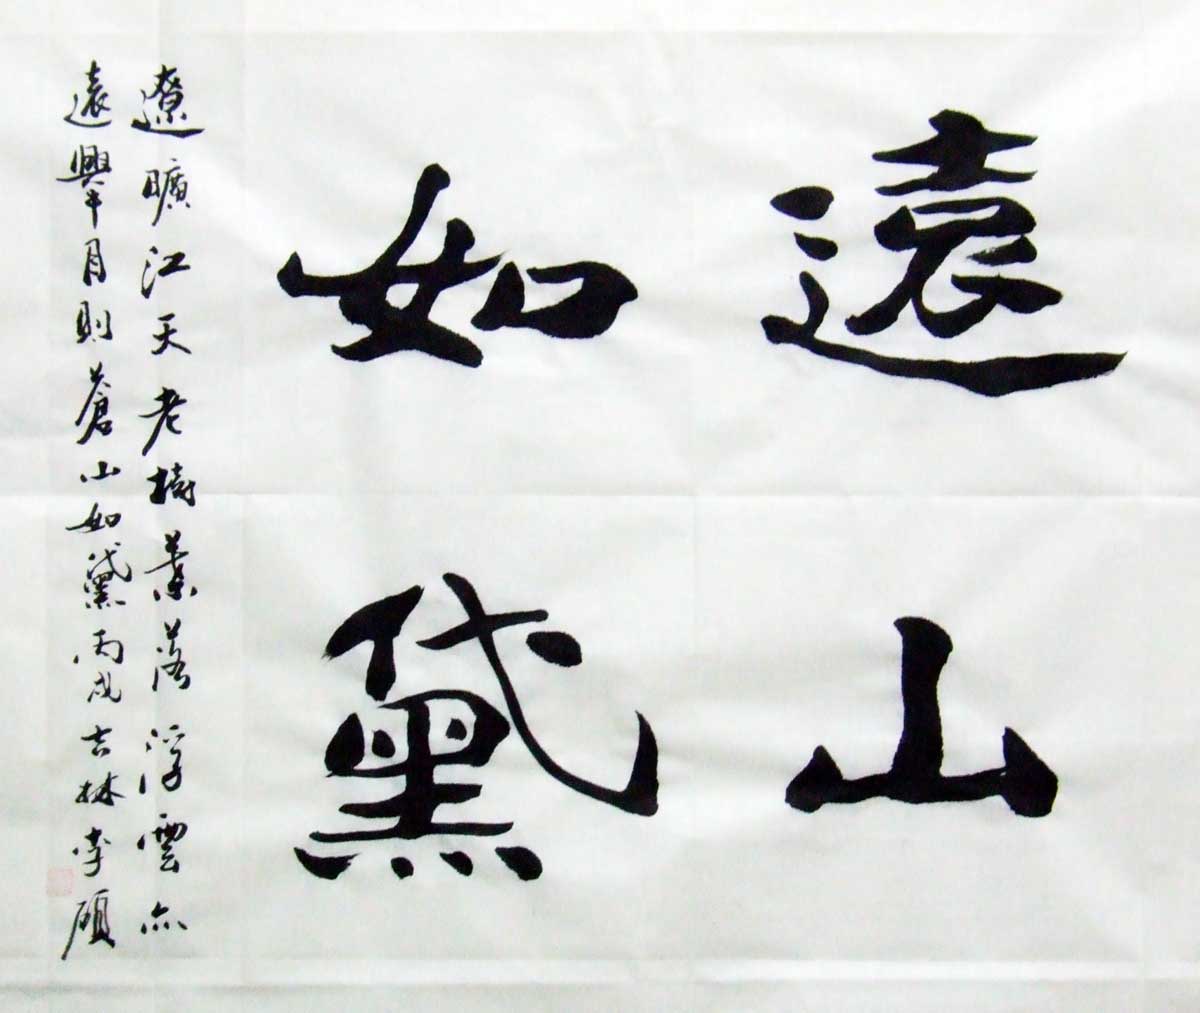 遠山
如黛
遼曠江天老樹葉落浮雲亦
遠舉目則蒼山如黛丙戌吉林李碩